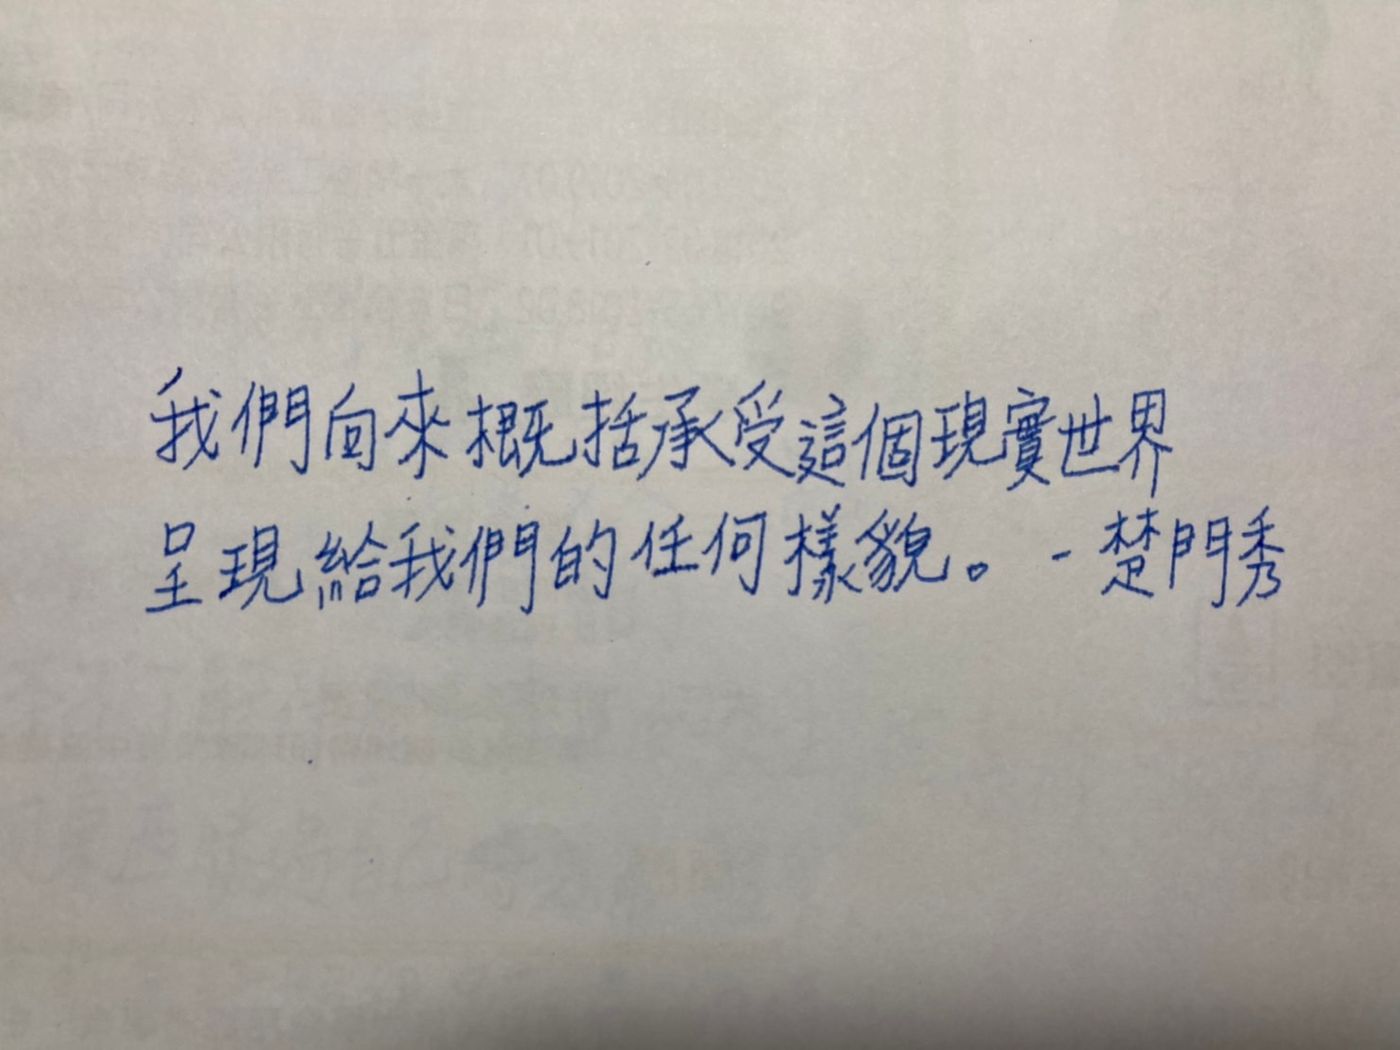 我們向來概括承受這個現實世界
呈現給我們的任何樣貌。-楚門秀